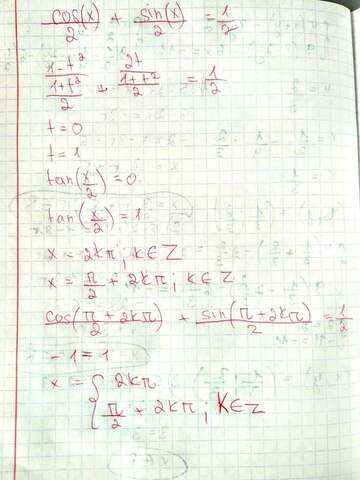 cos(x)/2 + sin(x)/2 = 1/2
((1-t²)/(1+t²))/2 + (2t/(1+t²))/2 = 1/2
t = 0
t = 1
tan(x/2) = 0
tan(x/2) = 1
x = 2kπ; k∈Z
x = π/2 + 2kπ; k∈Z
cos(π + 2kπ)/2 + sin(π + 2kπ)/2 = 1/2
-1 = 1
x = { 2kπ
π/2 + 2kπ; k∈Z